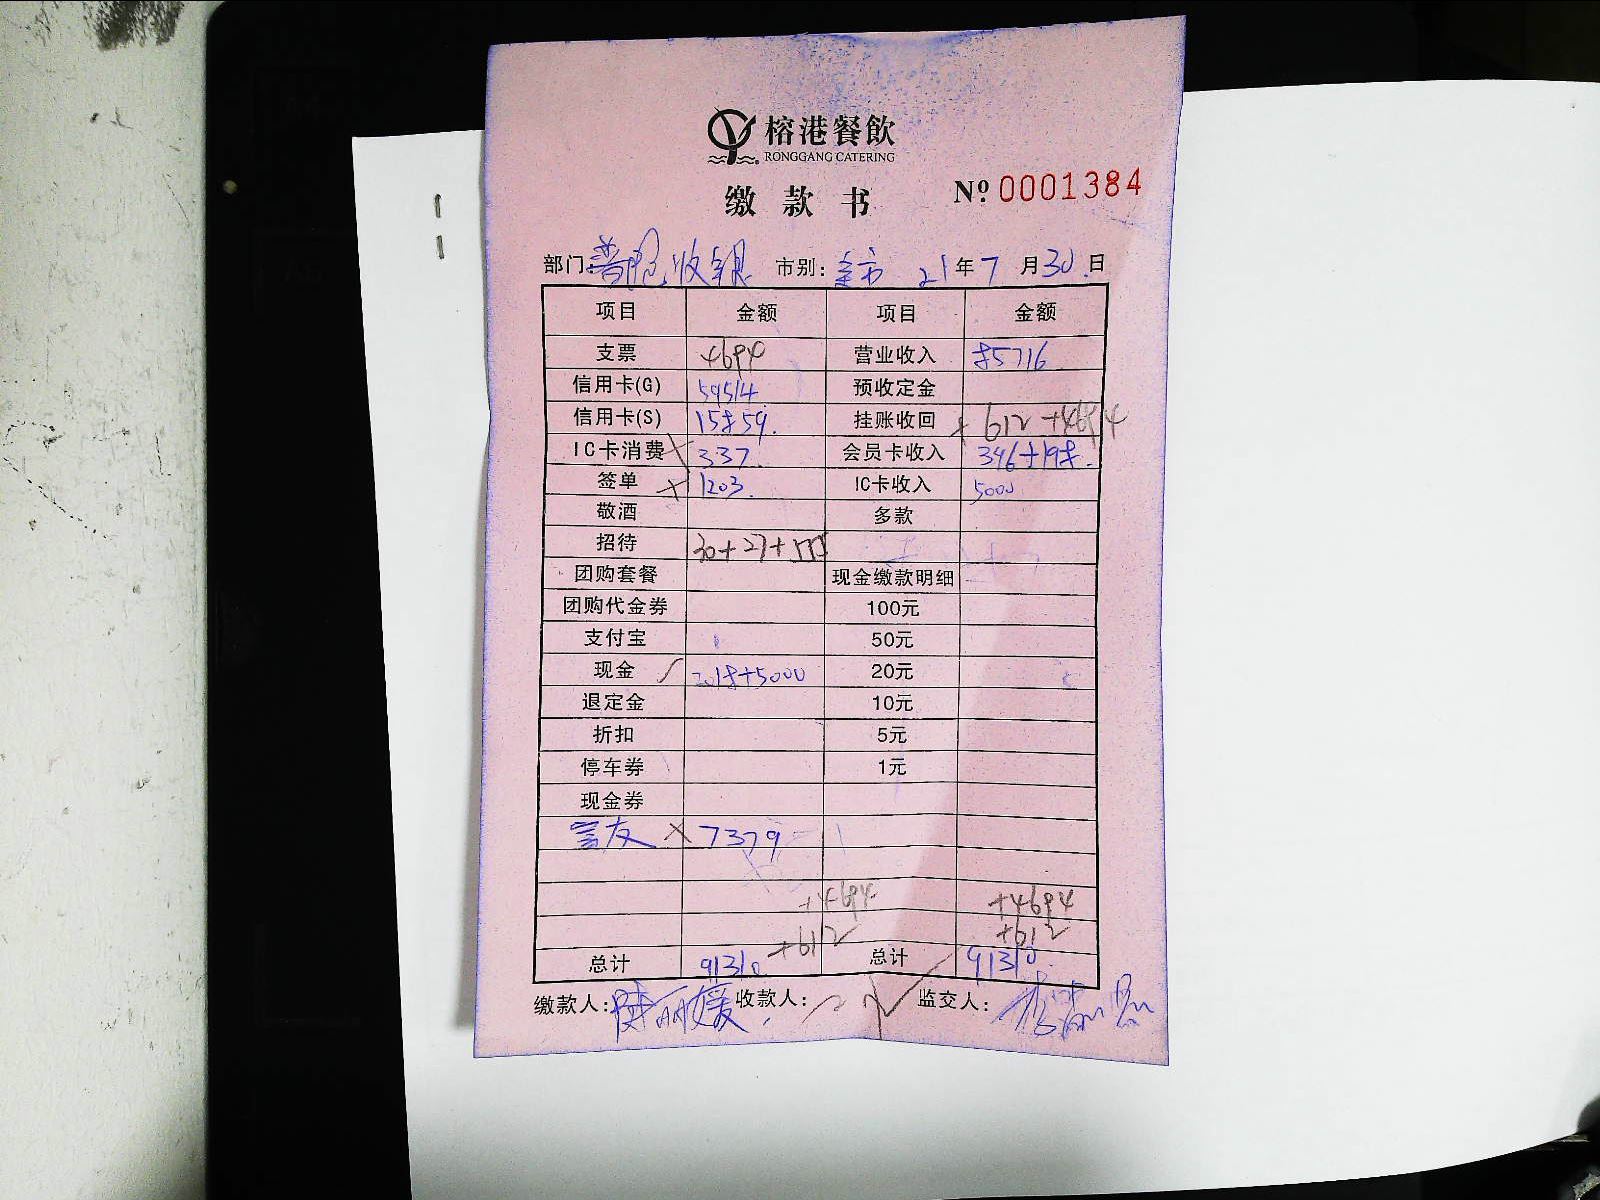 榕港餐飲
RONGGANG CATERING
缴款书 Nº 0001384
部门: 收银 市别: 全市 21年7月30日
项目 金额 项目 金额
支票 4694 营业收入 85716
信用卡(G) 59514 预收定金
信用卡(S) 15859. 挂账收回 +612+4694
IC卡消费 × 337. 会员卡收入 396+198.
签单 × 1203. IC卡收入 5000
敬酒 多款
招待 30+27+555
团购套餐 现金缴款明细
团购代金券 100元
支付宝 50元
现金 2018+5000 20元
退定金 10元
折扣 5元
停车券 1元
现金券
友 × 7379
+4694 +4694
+612 +612
总计 91310 总计 91310.
缴款人: 陈丽媛 收款人: 监交人: